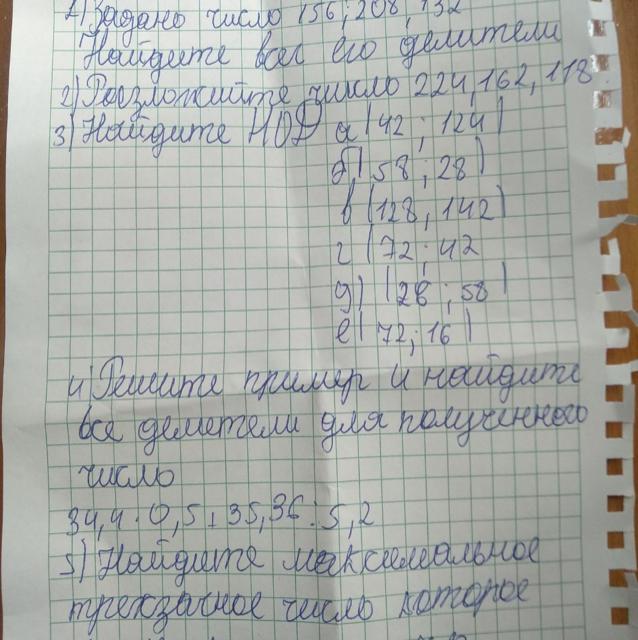 1) Задано число 156; 208, 132
Найдите все его делители
2) Разложите число 224, 162, 118
3) Найдите НОД а (42 ; 124)
б) (58 ; 28)
в (128, 142)
г (72 ; 42
д) (28 ; 58)
е (72; 16)
4) Решите пример и найдите
все делители для полученного
число
34,4 · 0,5 + 35,36 : 5,2
5) Найдите максимальное
трехзначное число которое